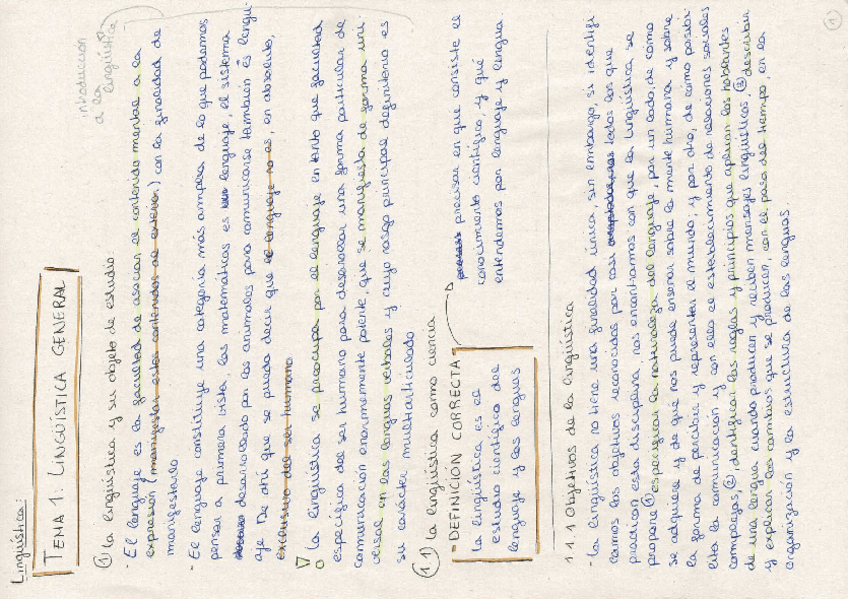 Lingüística:
TEMA 1. LINGÜÍSTICA GENERAL
introducción
a la
lingüística
① La lingüística y su objeto de estudio.
- El lenguaje es la facultad de asociar el contenido mental a la
expresión (manifestar estos contenidos al exterior) con la finalidad de
manifestarlo
- El lenguaje constituye una categoría más amplia de lo que podemos
pensar a primera vista, las matemáticas es lenguaje, el sistema
desarrollado por los animales para comunicarse también es lengua-
je. De ahí que se pueda decir que el lenguaje no es, en absoluto,
exclusivo del ser humano
La lingüística se preocupa por el lenguaje en tanto que facultad
específica del ser humano para desarrollar una forma particular de
comunicación enormemente potente, que se manifiesta de forma uni-
versal en las lenguas verbales y cuyo rasgo principal definitorio es
su carácter multiarticulado
1.1) La lingüística como ciencia
- DEFINICIÓN CORRECTA:
La lingüística es el
estudio científico del
lenguaje y las lenguas
precisar en que consiste el
conocimiento científico, y qué
entendemos por lenguaje y lengua.
1.1.1 Objetivos de la lingüística
- La lingüística no tiene una finalidad única, sin embargo, si identifi
camos los objetivos reconocidos por casi todos los que
practican esta disciplina, nos encontramos con que la lingüística se
propone ① especificar la naturaleza del lenguaje, por un lado, de cómo
se adquiere y de qué nos puede enseñar sobre la mente humana y sobre
la forma de percibir y representar el mundo; y por otro, de cómo posibi-
lita la comunicación y con ello el establecimiento de relaciones sociales
complejas, ② identificar las reglas y principios que aplican los hablantes
de una lengua cuando producen y reciben mensajes lingüísticos, ③ describir
y explicar los cambios que se producen, con el paso del tiempo, en la
organización y la estructura de las lenguas.
①